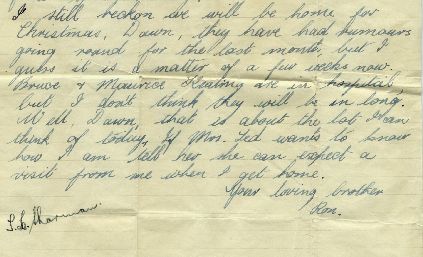 I still reckon we will be home for
Christmas, Dawn, they have had rumours
going round for the last month, but I
guess it is a matter of a few weeks now.
Bruce & Maurice Keating are in hospital
but I don't think they will be in long.
Well, Dawn, that is about the lot I can
think of today, if Mrs. Ted wants to know
how I am tell her she can expect a
visit from me when I get home.
Your loving brother
Ron.